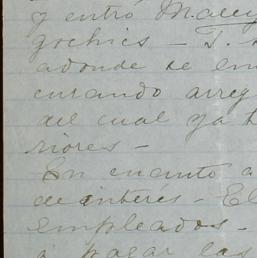 y entró
gochics - T.
adonde se em
curando arreg
del cual ya h
riores -
En cuanto a
de interés - El
empleados -
a pagar las